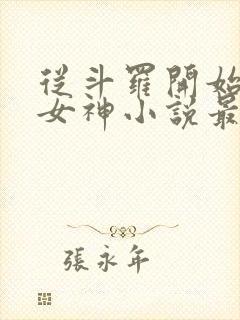 從斗羅開始
女神小說最
張永年